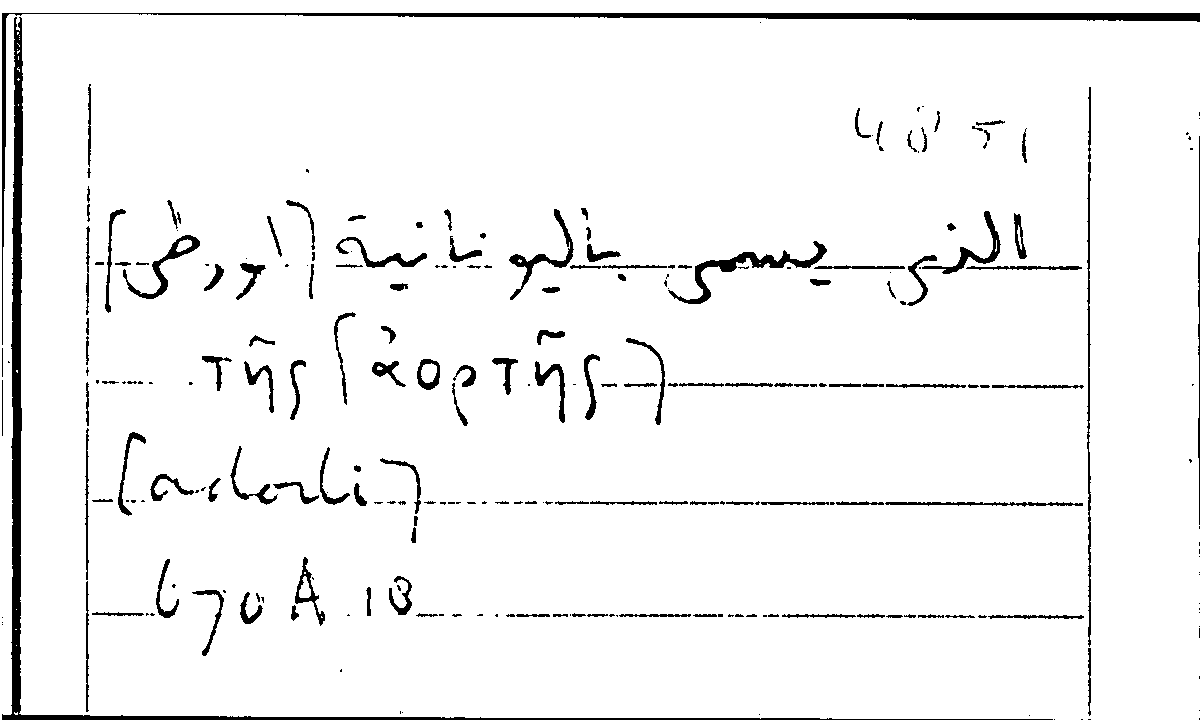 الذى يسمى باليونانية [اورطى]
τῆς [ἀορτῆς]
[adorti]
670 A 18